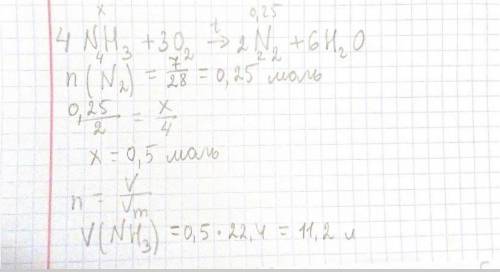 x 0,25
4 NH3 + 3O2 →t 2N2 + 6H2O
4 2
n(N2) = 7/28 = 0,25 моль
0,25/2 = x/4
x = 0,5 моль
n = V/Vm
V(NH3) = 0,5 · 22,4 = 11,2 л